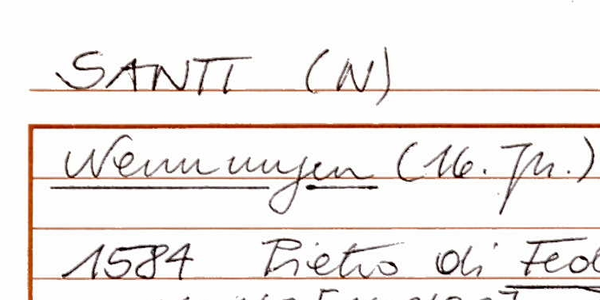 SANTI (N)
Nennungen (16. Jh.)
1584 Pietro di Fed